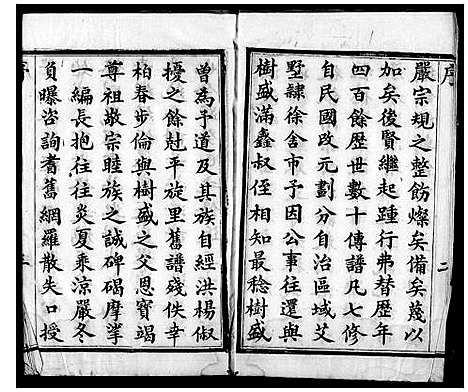 序
嚴宗規之整飭燦矣備矣蔑以
加矣後賢繼起踵行弗替歷年
四百餘歷世數十傳譜凡七修
自民國改元劃分自治區域艾
墅隸徐舍市予因公事往還與
樹盛滿鑫叔侄相知最稔樹盛
二
曾為予道及其族自經洪楊俶
擾之餘赶平旋里舊譜殘佚幸
柏春步倫與樹盛之父恩寶竭
尊祖敬宗睦族之誠碑碣摩挲
一編長抱往往炎夏乘涼嚴冬
負曝咨詢耆舊網羅散失口授
序
三